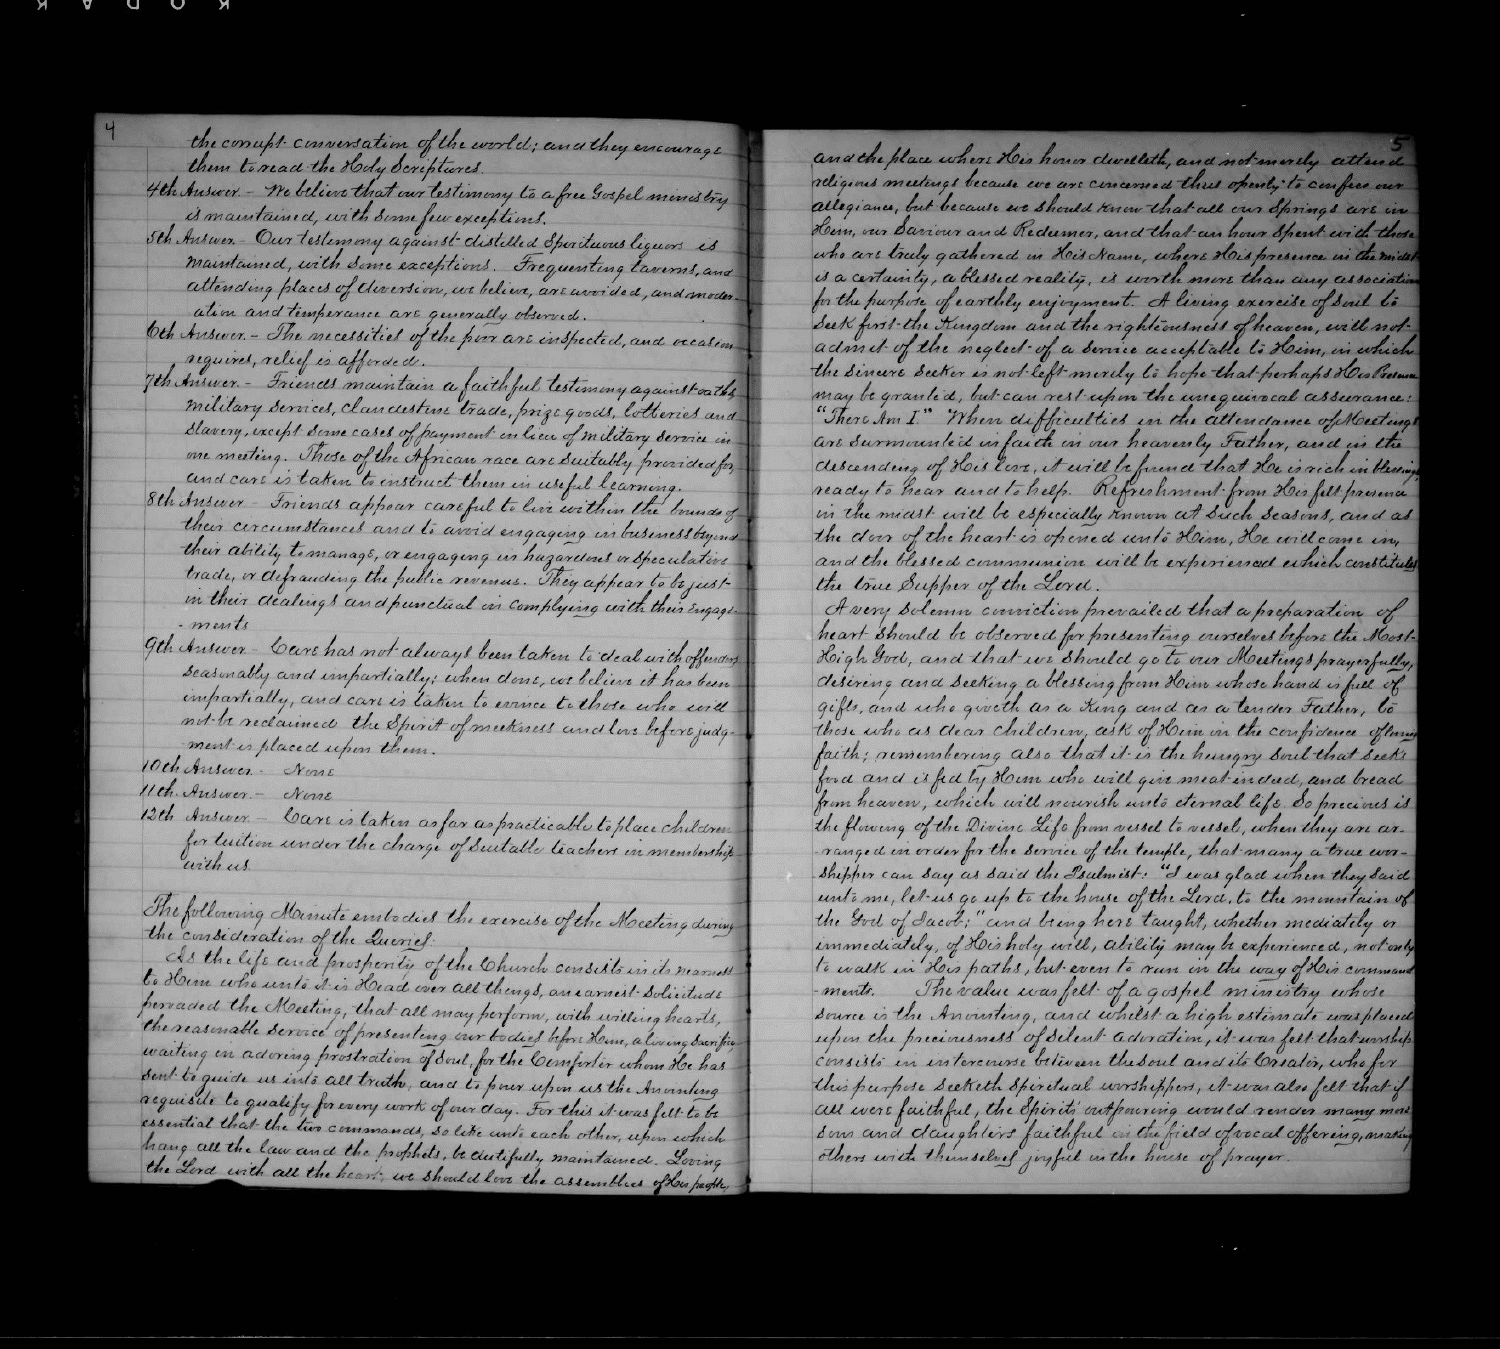 KODAK
4
the corrupt conversation of the world; and they encourage
them to read the Holy Scriptures.
4th Answer. - We believe that our testimony to a free Gospel ministry
is maintained, with some few exceptions.
5th Answer. - Our testimony against distilled Spirituous liquors is
maintained, with some exceptions. Frequenting taverns, and
attending places of diversion, we believe, are avoided, and moder-
ation and temperance are generally observed.
6th Answer. - The necessities of the poor are inspected, and occasion
requires, relief is afforded.
7th Answer. - Friends maintain a faithful testimony against oaths,
military services, clandestine trade, prize goods, lotteries and
slavery, except some cases of payment in lieu of military service in
one meeting. Those of the African race are suitably provided for,
and care is taken to instruct them in useful learning.
8th Answer - Friends appear careful to live within the bounds of
their circumstances and to avoid engaging in business beyond
their ability to manage, or engaging in hazardous or speculative
trade, or defrauding the public revenue. They appear to be just
in their dealings and punctual in complying with their engage-
-ments
9th Answer - Care has not always been taken to deal with offenders
seasonably and impartially; when done, we believe it has been
impartially, and care is taken to evince to those who will
not be reclaimed the Spirit of meekness and love before judg-
-ment is placed upon them.
10th Answer. - None
11th. Answer. - None
12th Answer. - Care is taken as far as practicable to place children
for tuition under the charge of suitable teachers in membership
with us
The following Minute embodies the exercise of the Meeting during
the consideration of the Queries.
As the life and prosperity of the Church consists in its nearness
to Him who unto it is Head over all things, an earnest solicitude
pervaded the Meeting, that all may perform, with willing hearts,
the reasonable service of presenting our bodies before Him, a living sacrifice,
waiting in adoring prostration of soul, for the Comforter whom He has
sent to guide us into all truth, and to pour upon us the Anointing
requisite to qualify for every work of our day. For this it was felt to be
essential that the two commands, so like unto each other, upon which
hang all the law and the prophets, be dutifully maintained. Loving
the Lord with all the heart, we should love the assemblies of His people,
5
and the place where His honor dwelleth, and not merely attend
religious meetings because we are concerned thus openly to confess our
allegiance, but because we should know that all our Springs are in
Him, our Saviour and Redeemer, and that an hour spent with those
who are truly gathered in His Name, where His presence in the midst
is a certainty, a blessed reality, is worth more than any association
for the purpose of earthly enjoyment. A living exercise of soul to
seek first the Kingdom and the righteousness of heaven, will not
admit of the neglect of a service acceptable to Him, in which
the sincere seeker is not left merely to hope that perhaps His Presence
may be granted, but can rest upon the unequivocal assurance:
"There Am I." When difficulties in the attendance of Meetings
are surmounted in faith in our heavenly Father, and in the
descending of His love, it will be found that He is rich in blessings,
ready to hear and to help. Refreshment from His felt presence
in the midst will be especially known at such seasons, and as
the door of the heart is opened unto Him, He will come in,
and the blessed communion will be experienced which constitutes
the true Supper of the Lord.
A very solemn conviction prevailed that a preparation of
heart should be observed for presenting ourselves before the Most
High God, and that we should go to our Meetings prayerfully,
desiring and seeking a blessing from Him whose hand is full of
gifts, and who giveth as a King and as a tender Father, to
those who as dear children, ask of Him in the confidence of living
faith; remembering also that it is the hungry soul that seeks
food and is fed by Him who will give meat indeed, and bread
from heaven, which will nourish unto eternal life. So precious is
the flowing of the Divine Life from vessel to vessel, when they are ar-
-ranged in order for the service of the temple, that many a true wor-
shipper can say as said the Psalmist: "I was glad when they said
unto me, let us go up to the house of the Lord, to the mountain of
the God of Jacob;" and being here taught, whether mediately or
immediately, of His holy will, ability may be experienced, not only
to walk in His paths, but even to run in the way of His command
-ments. The value was felt of a gospel ministry whose
source is the Anointing, and whilst a high estimate was placed
upon the preciousness of silent adoration, it was felt that worship
consists in intercourse between the soul and its Creator, who for
this purpose seeketh spiritual worshippers, it was also felt that if
all were faithful, the Spirit's outpouring would render many more
sons and daughters faithful in the field of vocal offering, making
others with themselves joyful in the house of prayer.